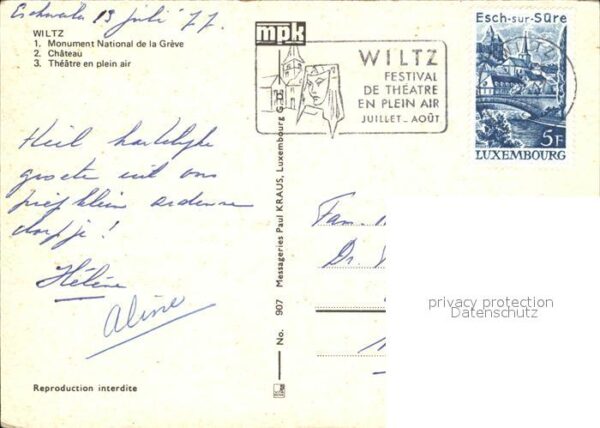 13 juli 77.
WILTZ
1. Monument National de la Grève
2. Château
3. Théâtre en plein air
Heel hartelijke
groete uit ons
klein ardenne
dorpje!
Hélène
Aline
Reproduction interdite
mpk
No. 907 Messageries Paul KRAUS, Luxembourg G
WILTZ
FESTIVAL
DE THÉATRE
EN PLEIN AIR
JUILLET - AOÛT
Esch-sur-Sûre
WILTZ
5F
LUXEMBOURG
Fam.
Dr.
privacy protection
Datenschutz